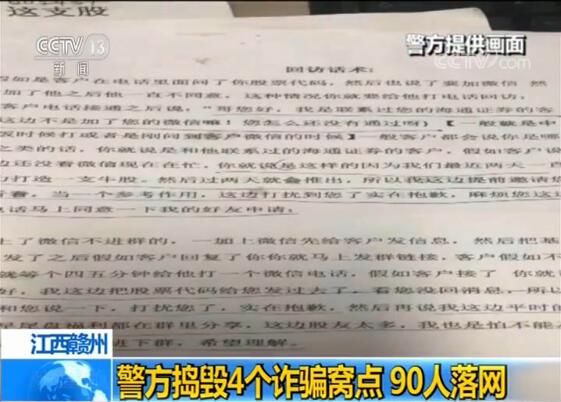 这支股
CCTV 13
新闻
警方提供画面
CCTV.com
回访话术:
假如是客户在电话里面问了你股票代码,然后也说了要加微信 然
加了他之后他一直不同意,这种情况你就要给他打电话回访:
客户电话接通之后说:"哥您好,我是联系过您的海通证券的客
这边不是加了您的微信嘛!您怎么还没有通过呀)【一般就是中
时候打或者是刚问到客户微信的时候】一般客户都会说你是哪
之类的话,你就说是和他联系过的海通证券的客户,假如客户说
边还没看微信现在在忙,你就说是这样的因为我们最近两天一直
打造一支牛股。然后过两天就会推出,所以我这边提前邀请您
看,当一个参考作用,这边打扰到您了实在抱歉,麻烦您这
电话马上同意一下我的好友申请。
上了微信不进群的,一加上微信先给客户发信息,然后把基
发了之后假如客户回复了你你就马上发群链接,客户假如不
就等个四五分钟给他打一个微信电话,假如客户接了 你就
好,我这边把股票代码给您发过去了,看您没回消息,所以
和您说一下,打扰您了,实在抱歉,然后再说我这边平时的
尾盘福利都在群里分享,这边股友太多,我也是怕不能
进下群,希望理解。
江西赣州
警方捣毁4个诈骗窝点 90人落网